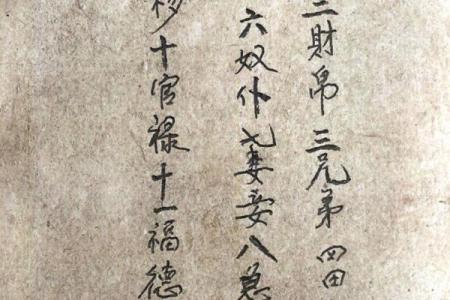 二財帛三兄弟四田
六奴仆七妻妾八
移十官祿十一福德